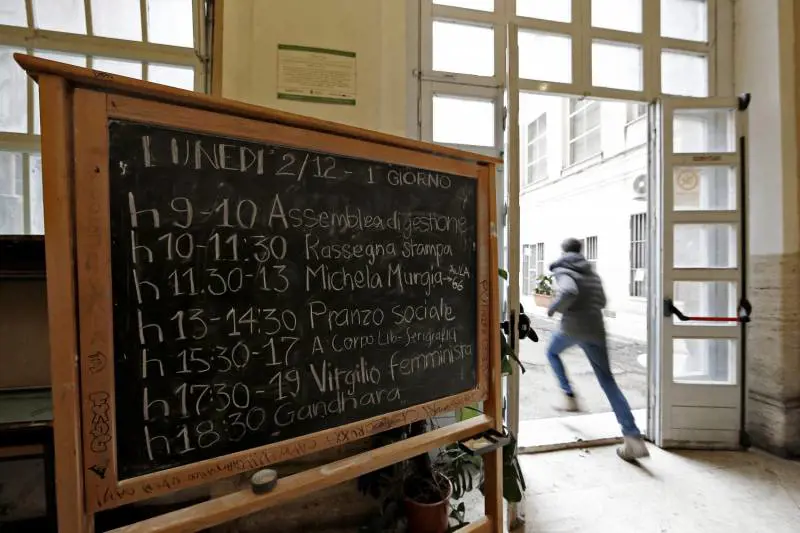 LUNEDI' 2/12 - 1° GIORNO
h 9-10 Assemblea di gestione
h 10-11:30 Rassegna stampa
h 11.30-13 Michela Murgia → AULA '66
h 13-14:30 Pranzo sociale
h 15:30-17 A Corpo Lib-Serigrafia
h 17:30-19 Virgilio femminista
h 18:30 Gandhara